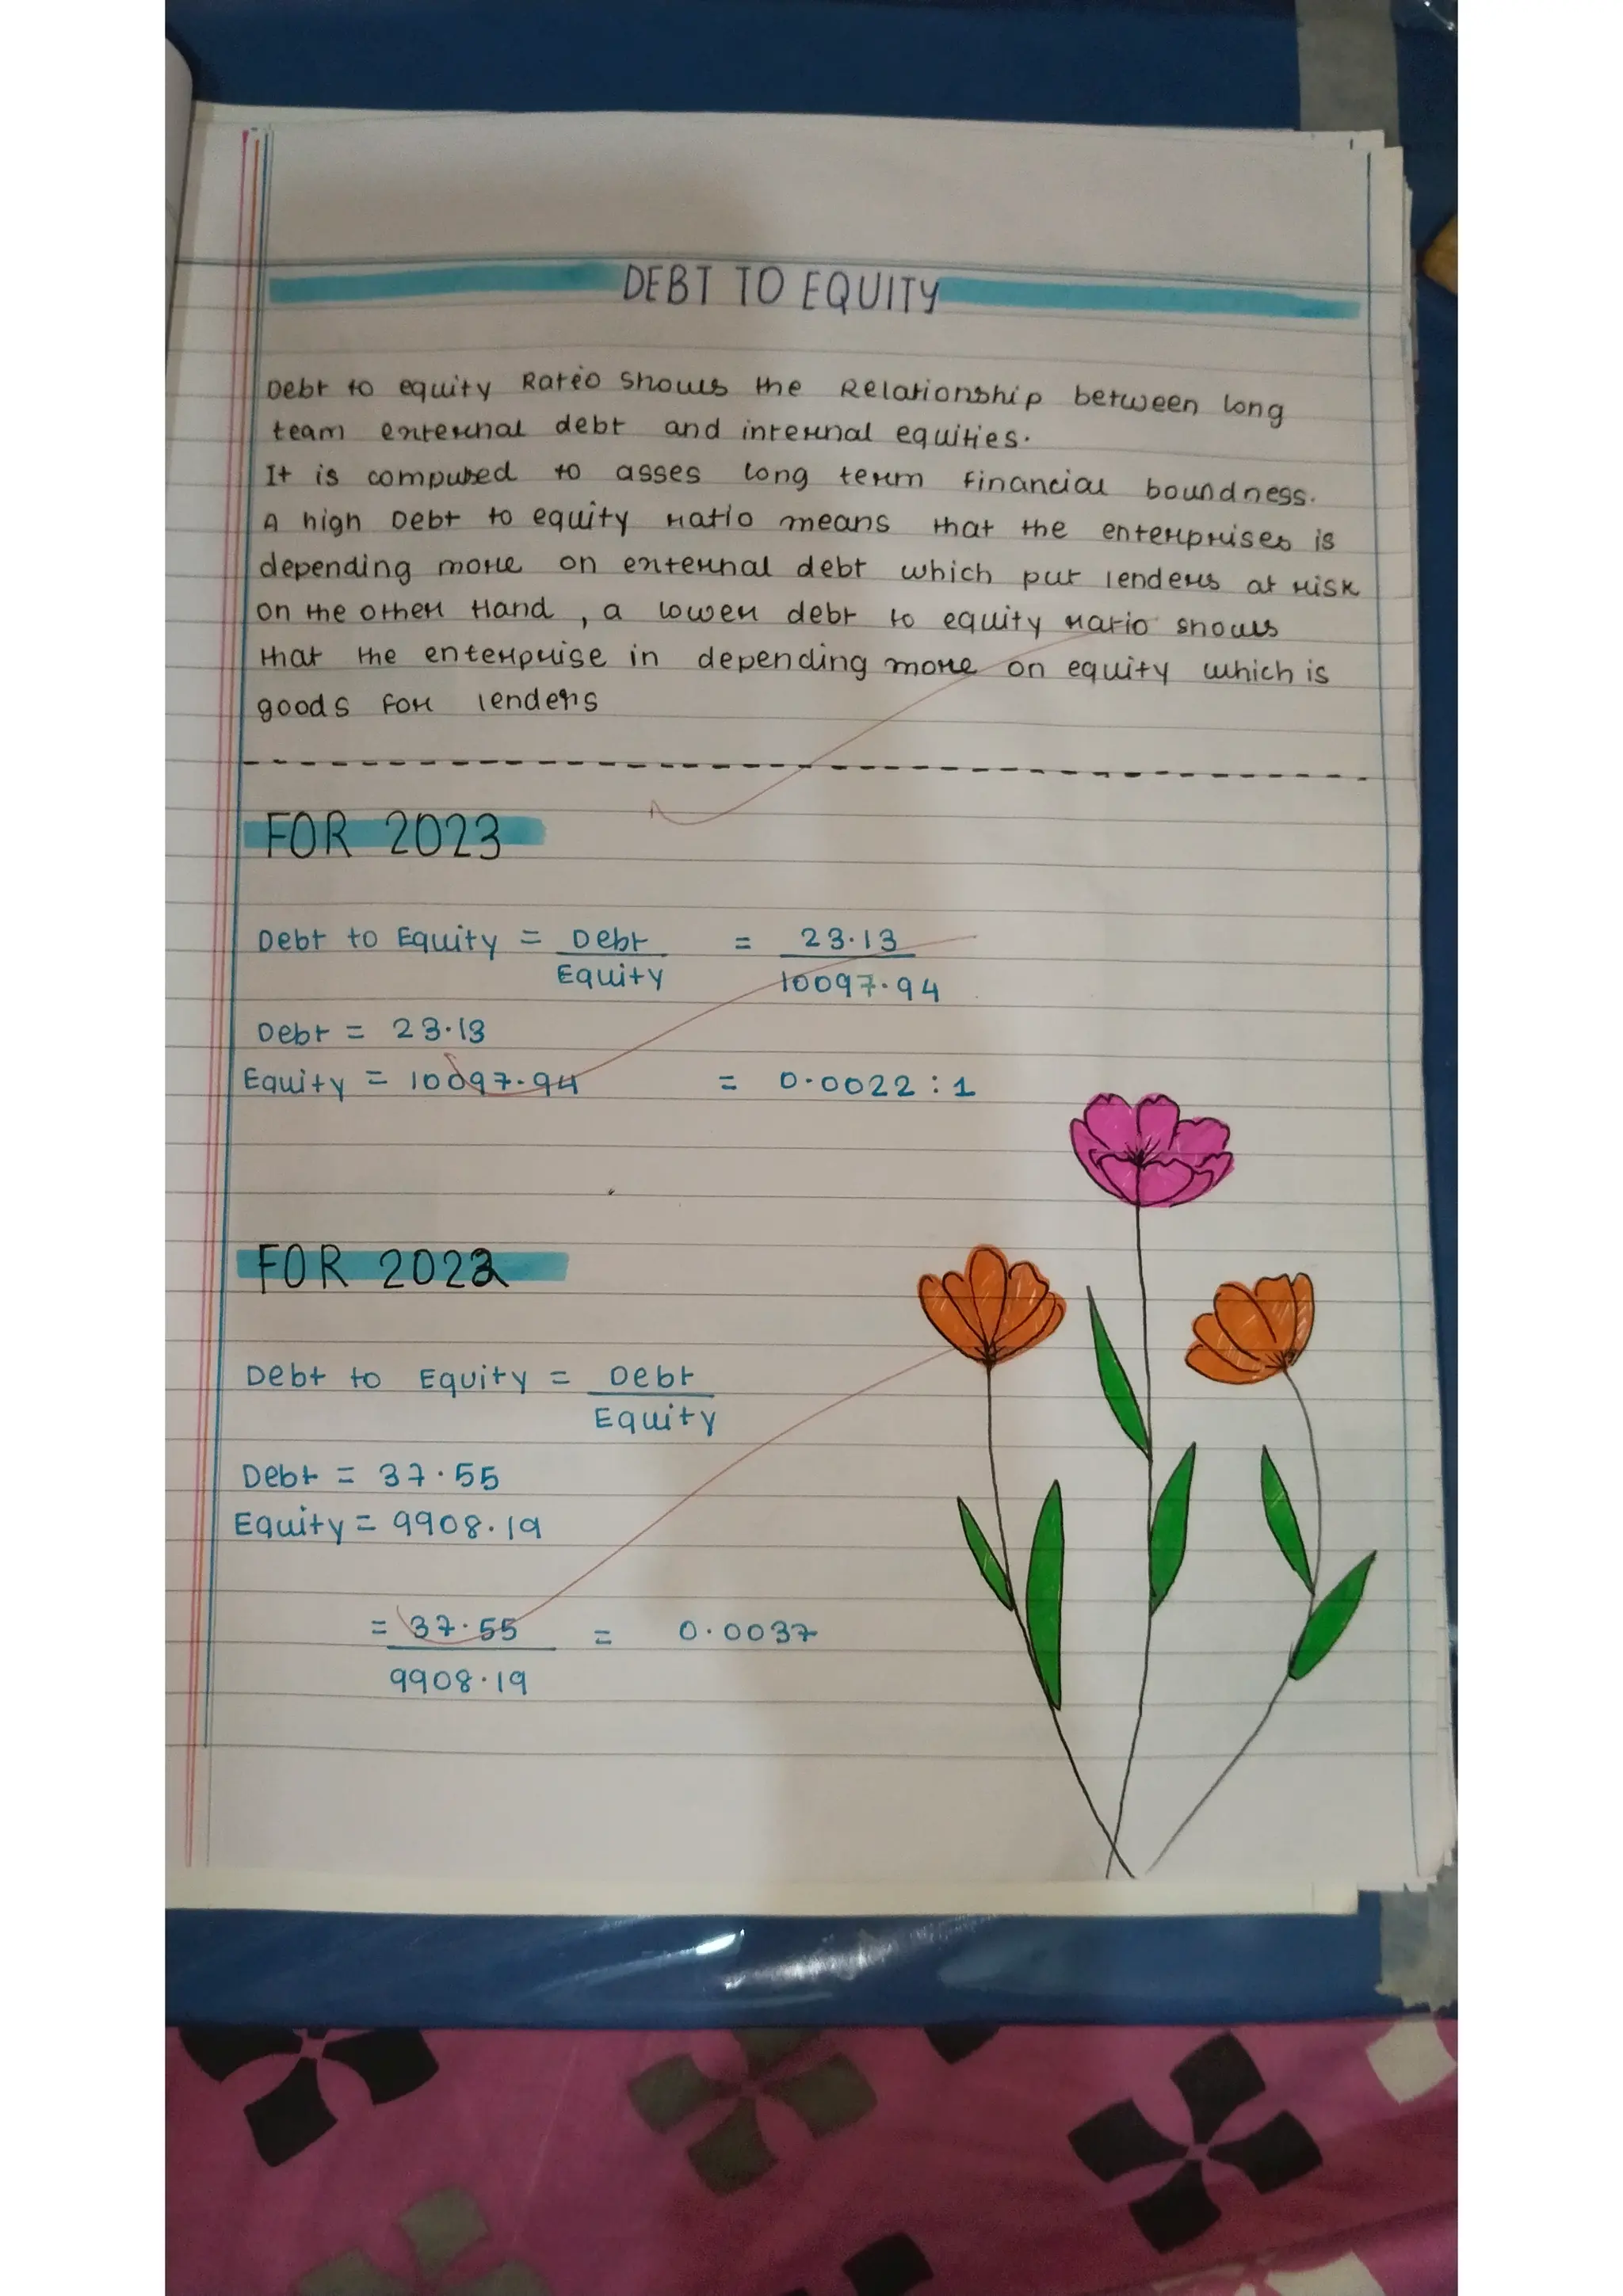 DEBT TO EQUITY
Debt to equity Ratio shows the Relationship between long
team external debt and internal equities.
It is computed to asses long term financial boundness.
A high Debt to equity ratio means that the enterprises is
depending more on external debt which put lenders at risk
on the other Hand , a lower debt to equity ratio shows
that the enterprise in depending more on equity which is
goods for lenders
FOR 2023
Debt to Equity = Debt = 23.13
Equity 10097.94
Debt = 23.13
Equity = 10097.94 = 0.0022 : 1
FOR 2022
Debt to Equity = Debt
Equity
Debt = 37.55
Equity = 9908.19
= 37.55 = 0.0037
9908.19